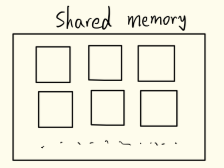 Shared memory